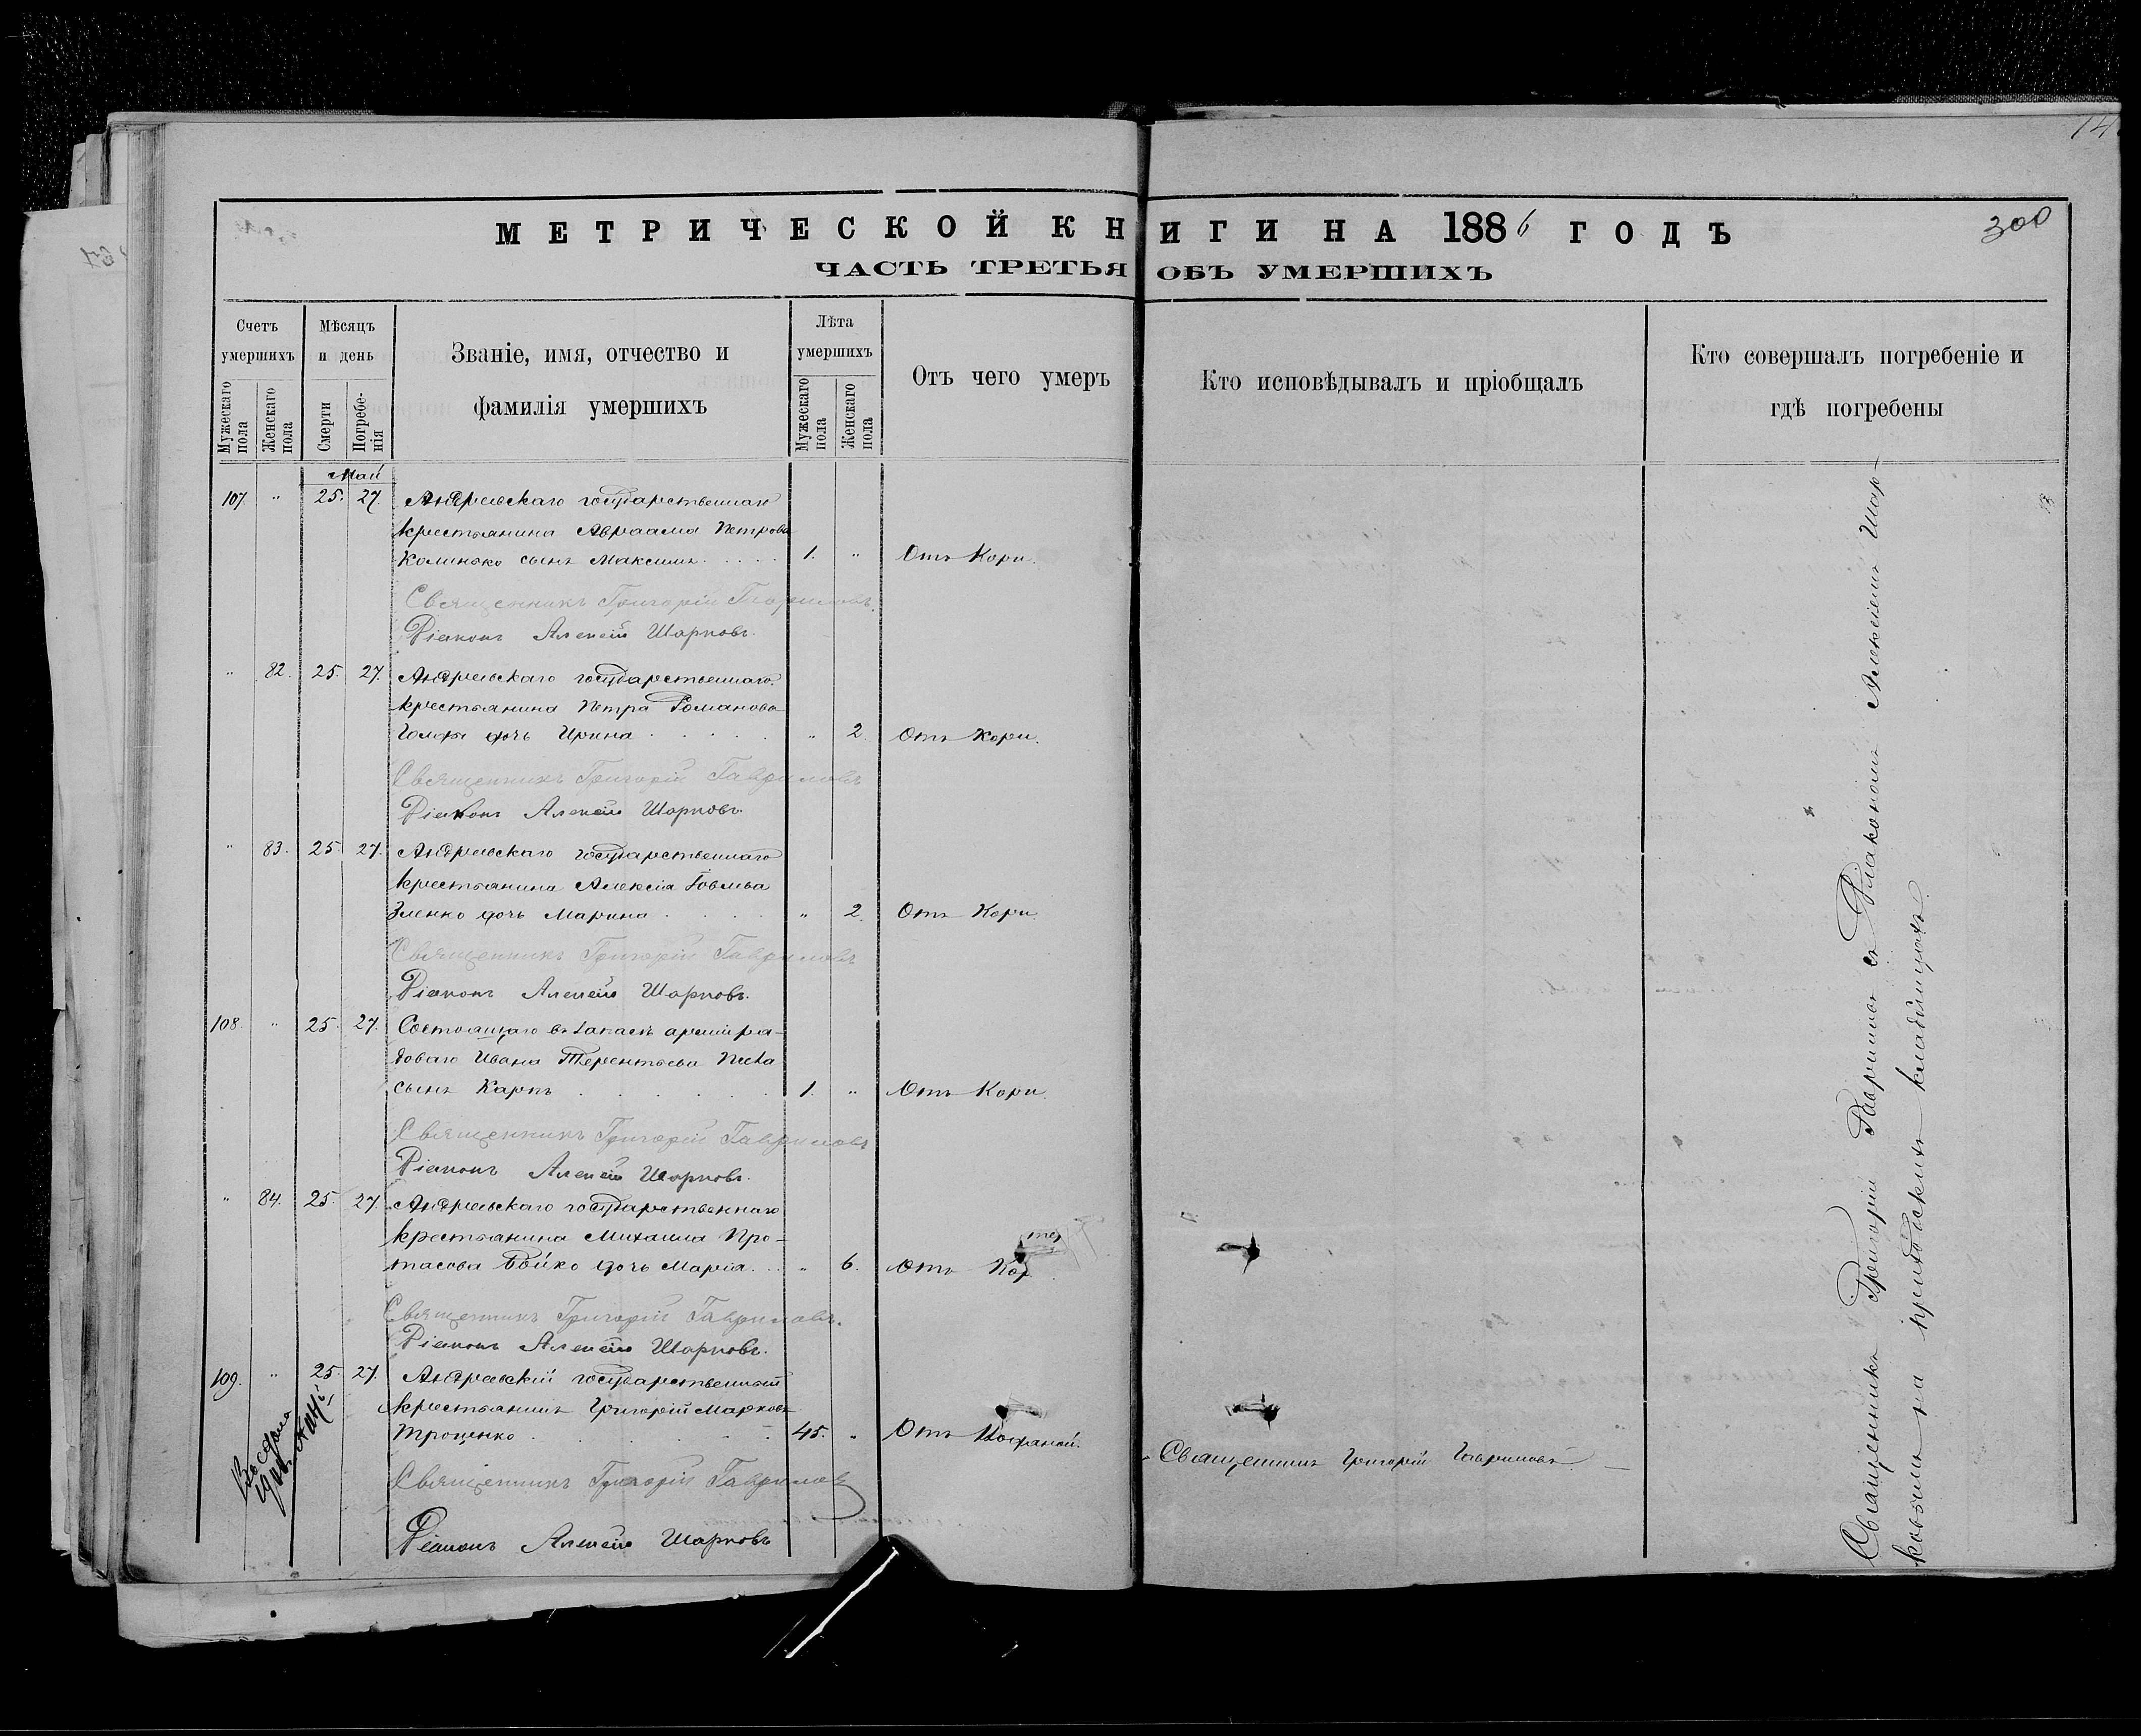 14
МЕТРИЧЕСКОЙ КНИГИ НА 1886 ГОДЪ
300
ЧАСТЬ ТРЕТЬЯ ОБЪ УМЕРШИХЪ
Счетъ умершихъ
Мужескаго пола
Женскаго пола
Мѣсяцъ и день
Смерти
Погребенія
Званіе, имя, отчество и
фамилія умершихъ
Лѣта умершихъ
Мужескаго пола
Женскаго пола
Отъ чего умеръ
Кто исповѣдывалъ и пріобщалъ
Кто совершалъ погребеніе и
гдѣ погребены
Май
107. " 25. 27. Андреевскаго государственнаго
крестьянина Авраама Петрова
сынъ Максимъ 1. " Отъ Кори.
Священникъ Григорій Гавриловъ.
Діаконъ Алексѣй Шарковъ.
" 82. 25. 27. Андреевскаго государственнаго
крестьянина Петра Романова
дочь Ирина " 2. Отъ Кори.
Священникъ Григорій Гавриловъ
Діаконъ Алексѣй Шарковъ.
" 83. 25. 27. Андреевскаго государственнаго
крестьянина Алексія
Зленко дочь Марина " 2. Отъ Кори.
Священникъ Григорій Гавриловъ
Діаконъ Алексѣй Шарковъ.
108. " 25. 27. Состоящаго въ запасѣ арміи ря-
доваго Ивана Терентьева
сынъ Карпъ 1. " Отъ Кори.
Священникъ Григорій Гавриловъ
Діаконъ Алексѣй Шарковъ.
" 84. 25. 27. Андреевскаго государственнаго
крестьянина Михаила Про-
тасова Бойко дочь Марія " 6. Отъ
Священникъ Григорій Гавриловъ.
Діаконъ Алексѣй Шарковъ.
109. " 25. 27. Андреевскій государственный
крестьянинъ Григорій Марковъ
Троценко 45. " Отъ
Священникъ Григорій Гавриловъ
Священникъ Григорій Гавриловъ
Діаконъ Алексѣй Шарковъ
Священникъ Григорій Гавриловъ съ Діакономъ Алексіемъ Шар-
ковымъ на приходскихъ кладбищахъ.